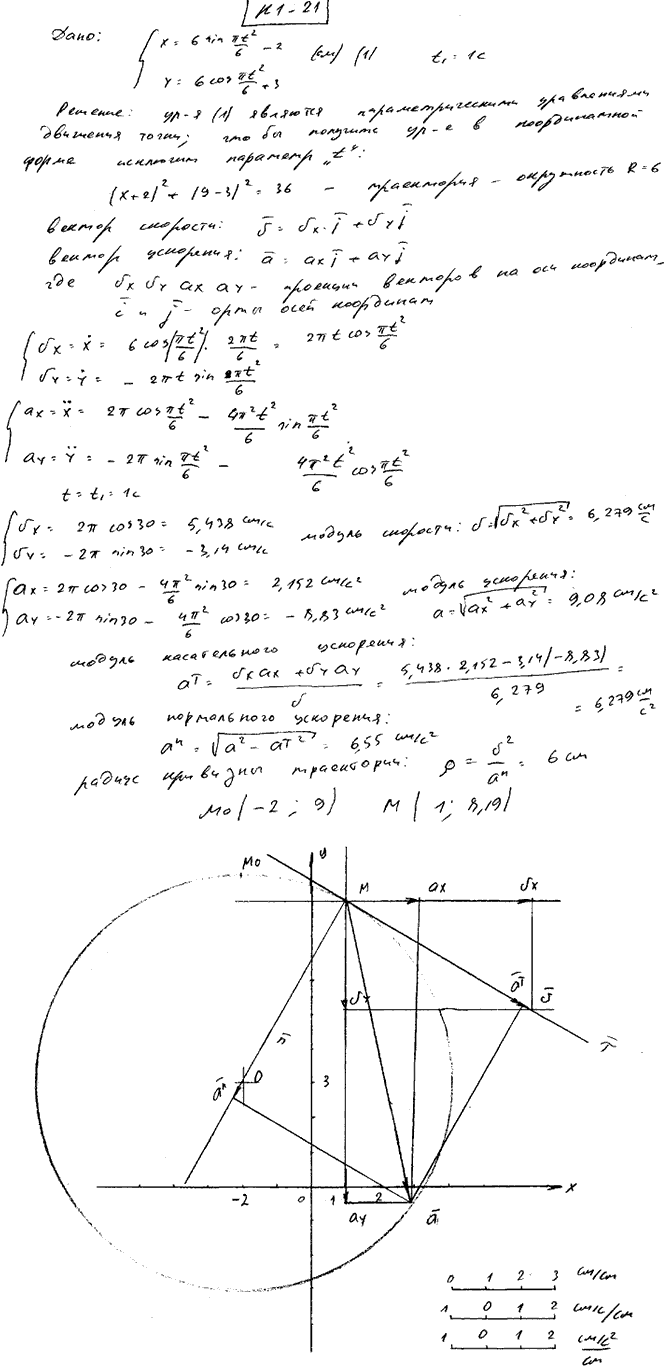 К1-21
Дано: { x = 6 sin πt²/6 - 2 (см) (1) t₁ = 1c
y = 6 cos πt²/6 + 3
Решение: ур-я (1) являются параметрическими уравнениями
движения точки; что бы получить ур-е в координатной
форме исключим параметр „t“:
(x+2)² + (y-3)² = 36 - траектория - окружность R = 6
вектор скорости: v̄ = vx·ī + vy j̄
вектор ускорения: ā = ax ī + ay j̄
где vx vy ax ay - проекции векторов на оси координат,
ī и j̄ - орты осей координат
{ vx = ẋ = 6 cos(πt²/6) · 2πt/6 = 2πt cos πt²/6
vy = ẏ = - 2πt sin πt²/6
{ ax = ẍ = 2π cos πt²/6 - 4π²t²/6 sin πt²/6
ay = ÿ = - 2π sin πt²/6 - 4π²t²/6 cos πt²/6
t = t₁ = 1c
{ vx = 2π cos30 = 5,438 см/с
vy = -2π sin30 = -3,14 см/с модуль скорости: v = √(vx² + vy²) = 6,279 см/с
{ ax = 2π cos30 - 4π²/6 sin30 = 2,152 см/с² модуль ускорения:
ay = -2π sin30 - 4π²/6 cos30 = -8,83 см/с² a = √(ax² + ay²) = 9,08 см/с²
модуль касательного ускорения:
aτ = (vx ax + vy ay)/v = (5,438 · 2,152 - 3,14(-8,83))/6,279 =
= 6,279 см/с²
модуль нормального ускорения:
aⁿ = √(a² - aτ²) = 6,55 см/с²
радиус кривизны траектории: ρ = v²/aⁿ = 6 см
M₀(-2; 9) M(1; 8,19)
M₀ y M ax vx
vy āτ v̄
n̄ τ̄
āⁿ O 3
-2 0 1 2 x
ay ā
0 1 2 3 см/см
1 0 1 2 см/с/см
1 0 1 2 см/с²/см